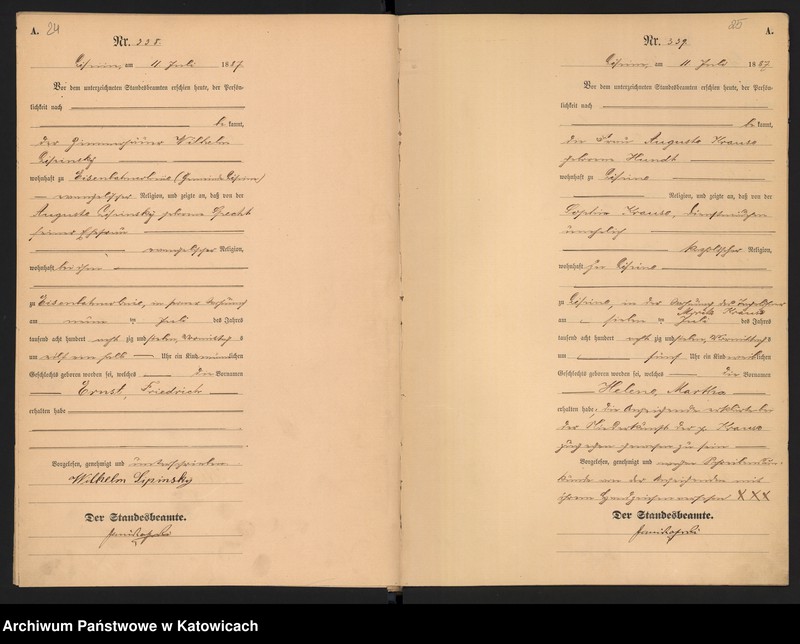 A. 24
Nr. 228.
am 11 Juli 1887
Vor dem unterzeichneten Standesbeamten erschien heute, der Persön-
lichkeit nach
be kannt,
der Wilhelm
Lipinsky
wohnhaft zu (Gemeinde
evangelischer Religion, und zeigte an, daß von der
Auguste Lipinsky geborene
seiner Ehefrau
evangelischer Religion,
wohnhaft bei ihm
zu in seiner Wohnung
am neun ten Juli des Jahres
tausend acht hundert acht zig und sieben, Vormittags
um elf ein halb Uhr ein Kind männlichen
Geschlechts geboren worden sei, welches die Vornamen
Ernst, Friedrich
erhalten habe
Vorgelesen, genehmigt und unterschrieben
Wilhelm Lipinsky
Der Standesbeamte.
25 A.
Nr. 229.
am 11 Juli 1887
Vor dem unterzeichneten Standesbeamten erschien heute, der Persön-
lichkeit nach
be kannt,
die Frau Auguste Krause
geborene Hundt
wohnhaft zu
Religion, und zeigte an, daß von der
Krause,
unehelich
Religion,
wohnhaft zu
zu in der Wohnung des
Krause
am sieben ten Juli des Jahres
tausend acht hundert acht zig und sieben, Vormittags
um fünf Uhr ein Kind weiblichen
Geschlechts geboren worden sei, welches die Vornamen
Helene, Martha
erhalten habe; die Anzeigende erklärte bei
der Niederkunft der p. Krause
zugegen gewesen zu sein
Vorgelesen, genehmigt und wegen Schreibensun-
kunde von der Anzeigenden mit
ihrem Handzeichen versehen XXX
Der Standesbeamte.
Archiwum Państwowe w Katowicach